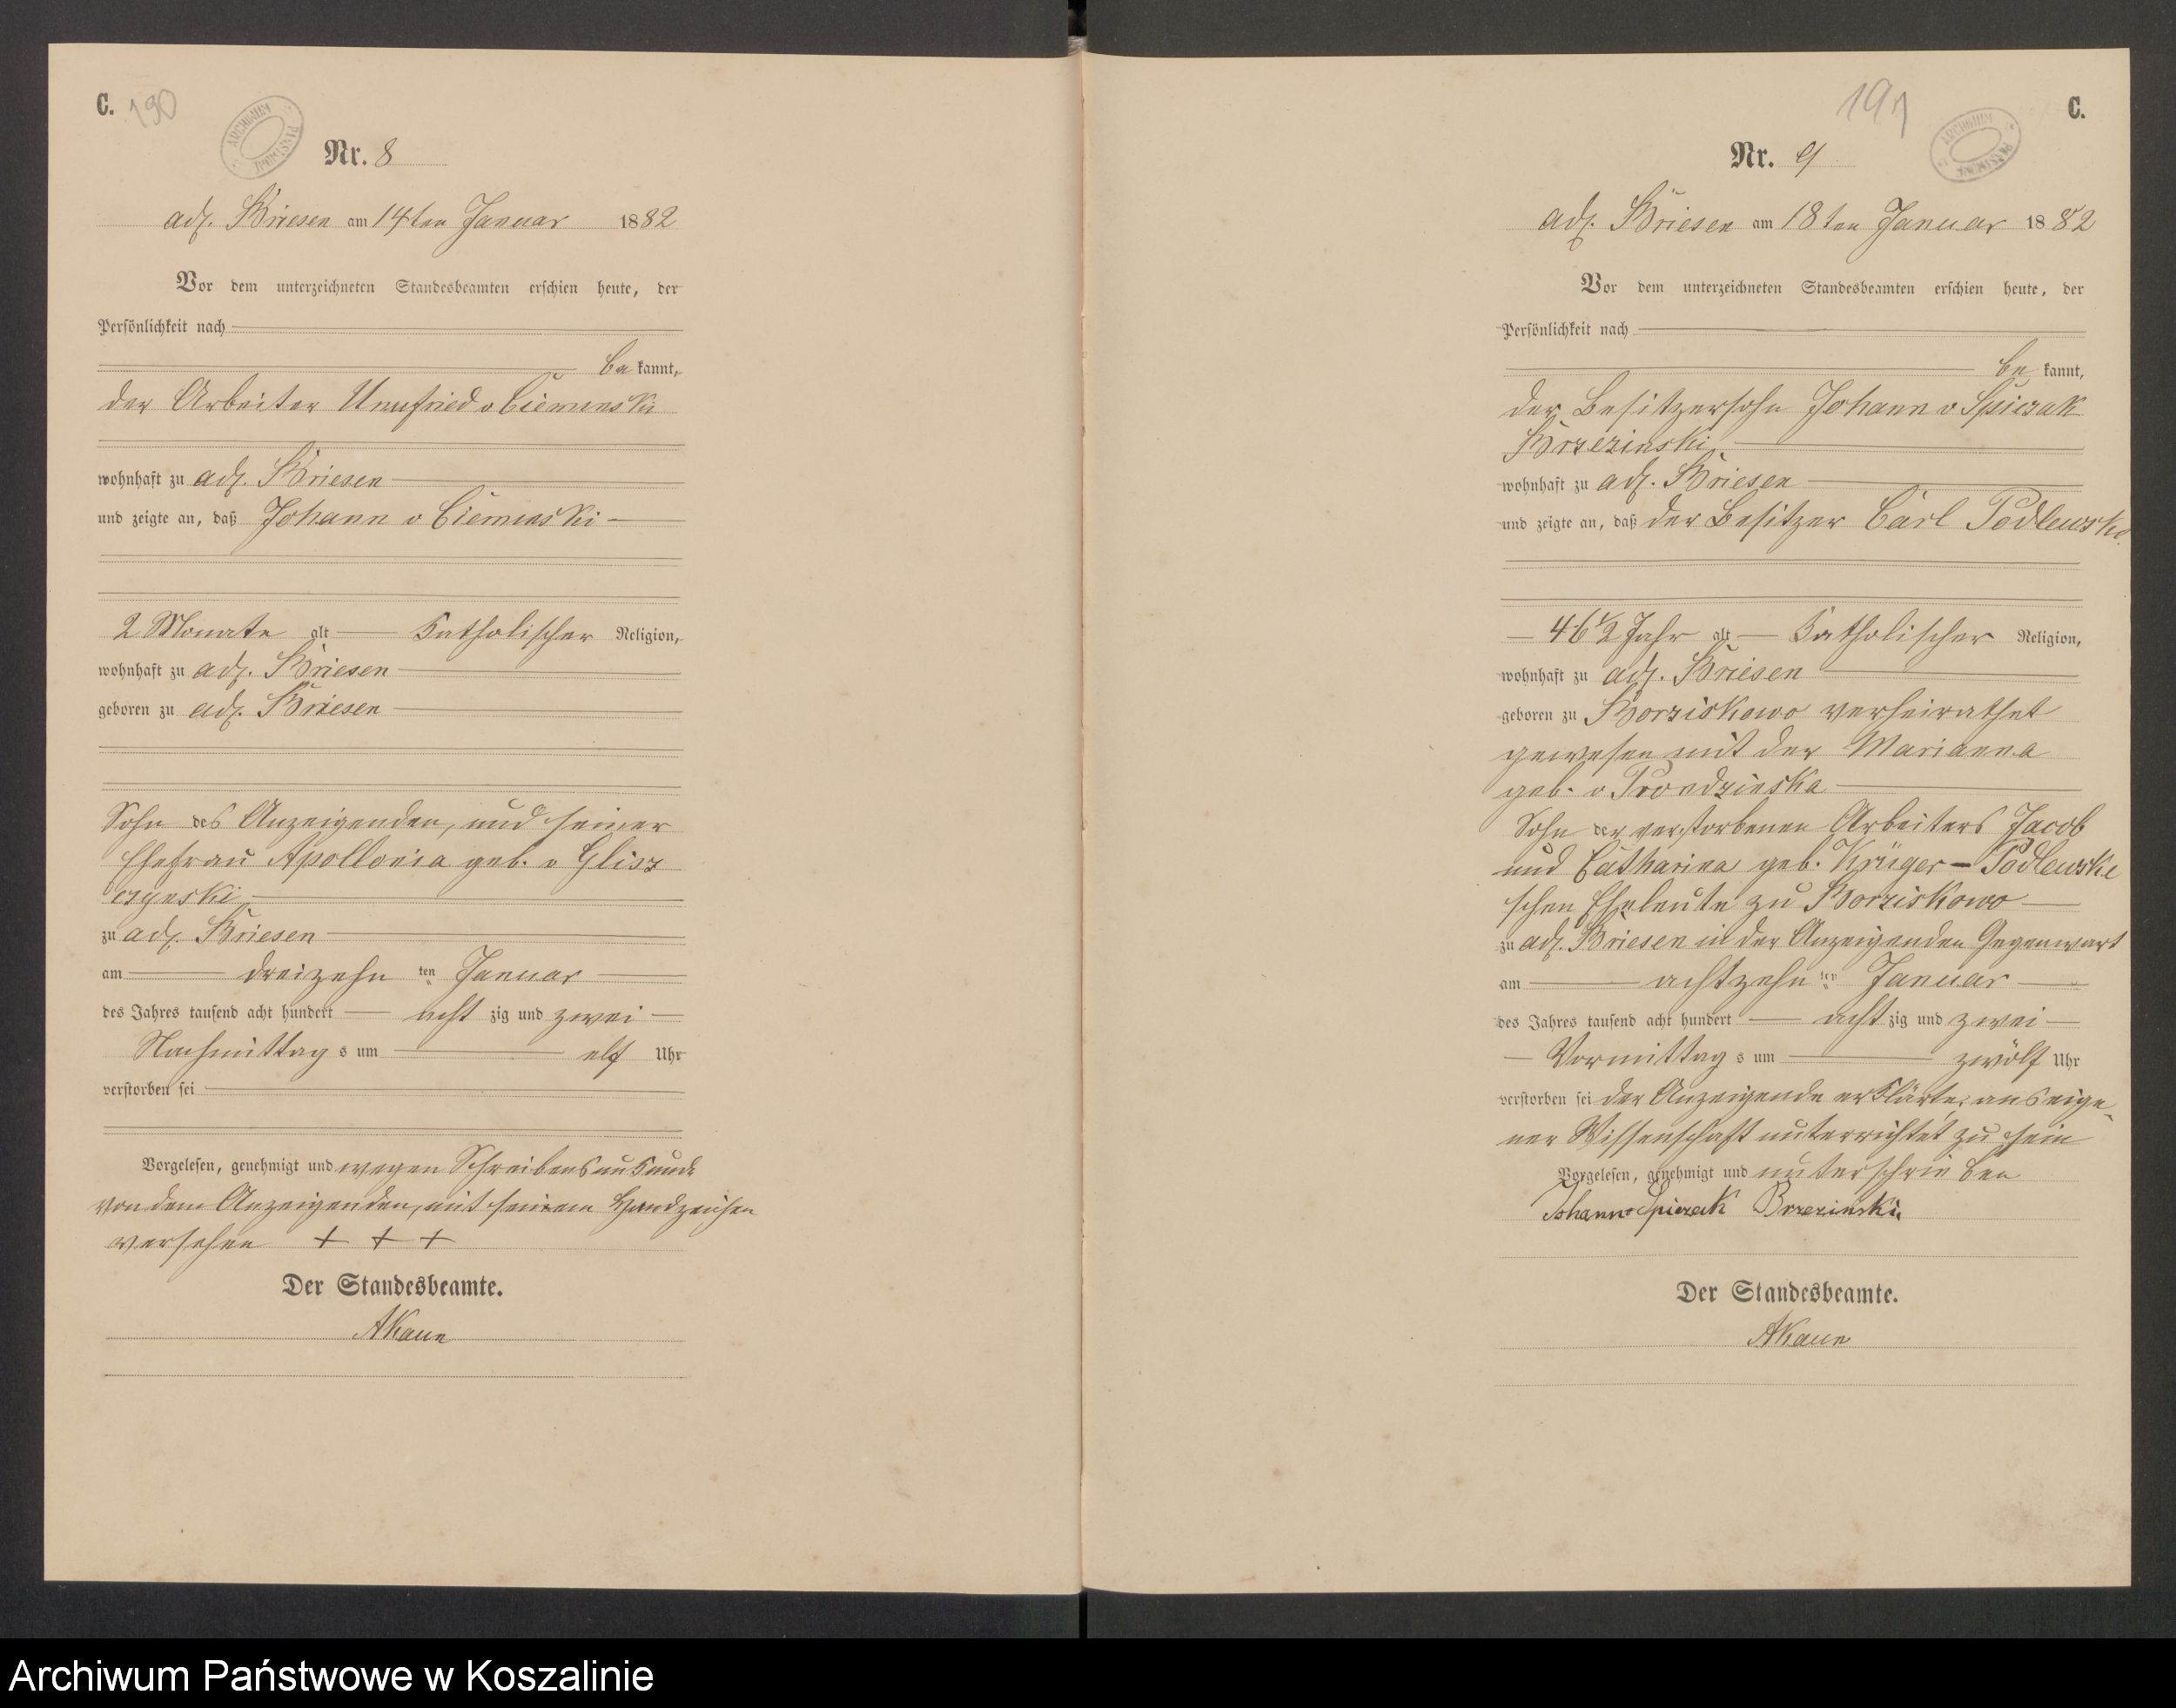 C. 190
ARCHIWUM PAŃSTWOWE
Nr. 8
adl. Briesen am 14ten Januar 1882
Vor dem unterzeichneten Standesbeamten erschien heute, der
Persönlichkeit nach
be kannt,
der Arbeiter Unufried v Cieminski
wohnhaft zu adl. Briesen
und zeigte an, daß Johann v Cieminski
2 Monate alt Katholischer Religion,
wohnhaft zu adl. Briesen
geboren zu adl. Briesen
Sohn des Anzeigenden, und seiner
Ehefrau Apollonia geb. v Glisz
czynski
zu adl. Briesen
am dreizehn ten Januar
des Jahres tausend acht hundert acht zig und zwei
Nachmittag s um elf Uhr
verstorben sei
Vorgelesen, genehmigt und wegen Schreibensunkunde
von dem Anzeigenden, mit seinem Handzeichen
versehen + + +
Der Standesbeamte.
AKaun
191 C.
ARCHIWUM PAŃSTWOWE
Nr. 9
adl. Briesen am 18ten Januar 1882
Vor dem unterzeichneten Standesbeamten erschien heute, der
Persönlichkeit nach
be kannt,
der Besitzersohn Johann v Spiczak
Brzezinski
wohnhaft zu adl. Briesen
und zeigte an, daß der Besitzer Carl Podlewski
46 1/2 Jahr alt Katholischer Religion,
wohnhaft zu adl. Briesen
geboren zu Borziskowo verheirathet
gewesen mit der Marianna
geb. v Prondzinska
Sohn der verstorbenen Arbeiters Jacob
und Catharina geb. Krüger - Podlewski
schen Eheleute zu Borziskowo
zu adl. Briesen in der Anzeigenden Gegenwart
am achtzehn ten Januar
des Jahres tausend acht hundert acht zig und zwei
Vormittag s um zwölf Uhr
verstorben sei der Anzeigende erklärte, aus eige-
ner Wissenschaft unterrichtet zu sein
Vorgelesen, genehmigt und unterschrieben
Johann v Spiczak Brzezinski.
Der Standesbeamte.
AKaun
Archiwum Państwowe w Koszalinie